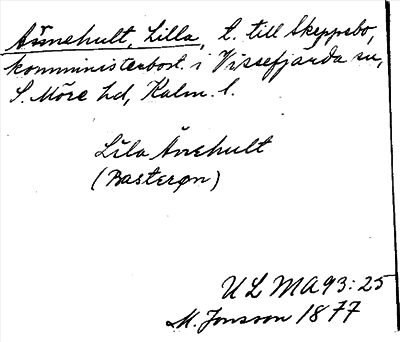 Åsnehult, Lilla, t. till Skeppebo,
komministerbost. i Vissefjärda sn,
S. Möre hd, Kalm. l.
Lila Åsnehult
(Basterøn)
ULMA 93:25
M. Jonsson 1877